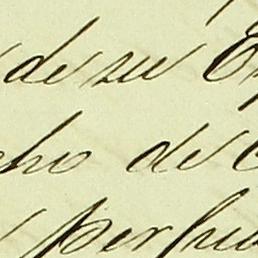 de su E
cho de
perju